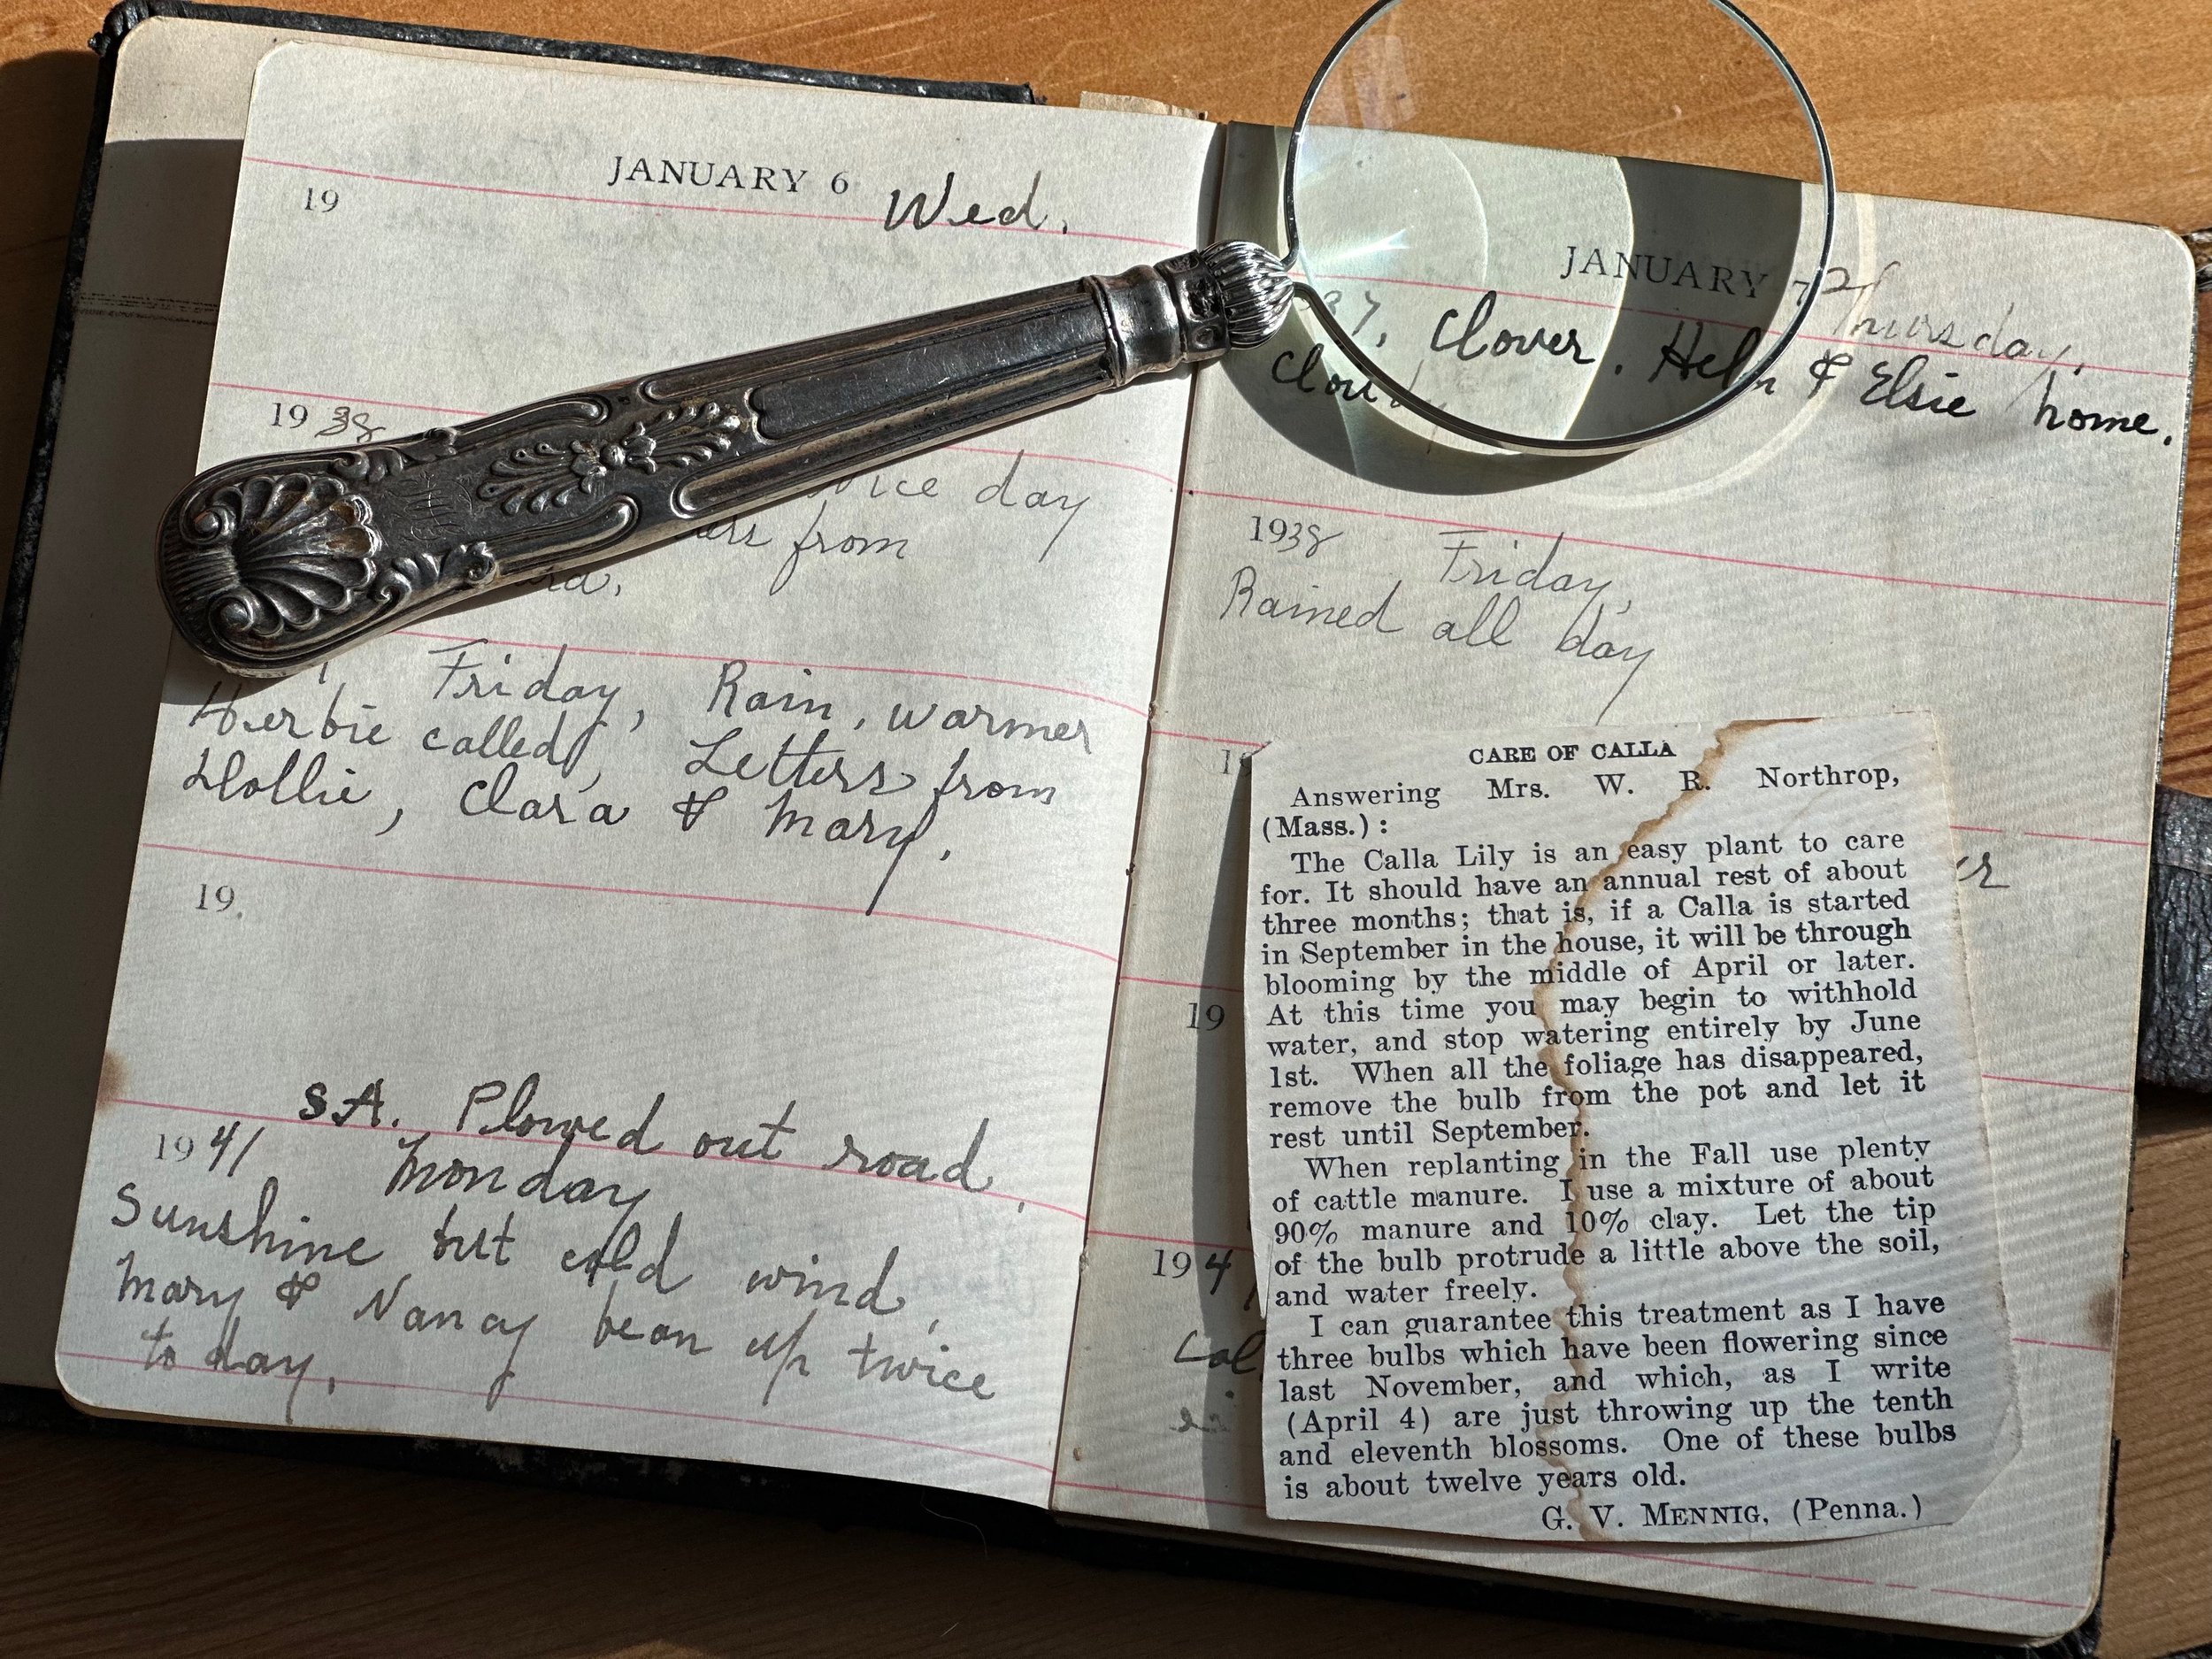 JANUARY 6 Wed.
19
1938
nice day
from
Friday, Rain, warmer
Herbie called, Letters from
Dollie, Clara & Mary.
19.
SA. Plowed out road,
1941 Monday
Sunshine but cold wind,
Mary & Nancy bean up twice
to day.
JANUARY 7
Thursday,
37, Clover. Helen & Elsie home.
Cloudy
1938 Friday,
Rained all day
19
1941
CARE OF CALLA
Answering Mrs. W. R. Northrop,
(Mass.):
The Calla Lily is an easy plant to care
for. It should have an annual rest of about
three months; that is, if a Calla is started
in September in the house, it will be through
blooming by the middle of April or later.
At this time you may begin to withhold
water, and stop watering entirely by June
1st. When all the foliage has disappeared,
remove the bulb from the pot and let it
rest until September.
When replanting in the Fall use plenty
of cattle manure. I use a mixture of about
90% manure and 10% clay. Let the tip
of the bulb protrude a little above the soil,
and water freely.
I can guarantee this treatment as I have
three bulbs which have been flowering since
last November, and which, as I write
(April 4) are just throwing up the tenth
and eleventh blossoms. One of these bulbs
is about twelve years old.
G. V. MENNIG, (Penna.)